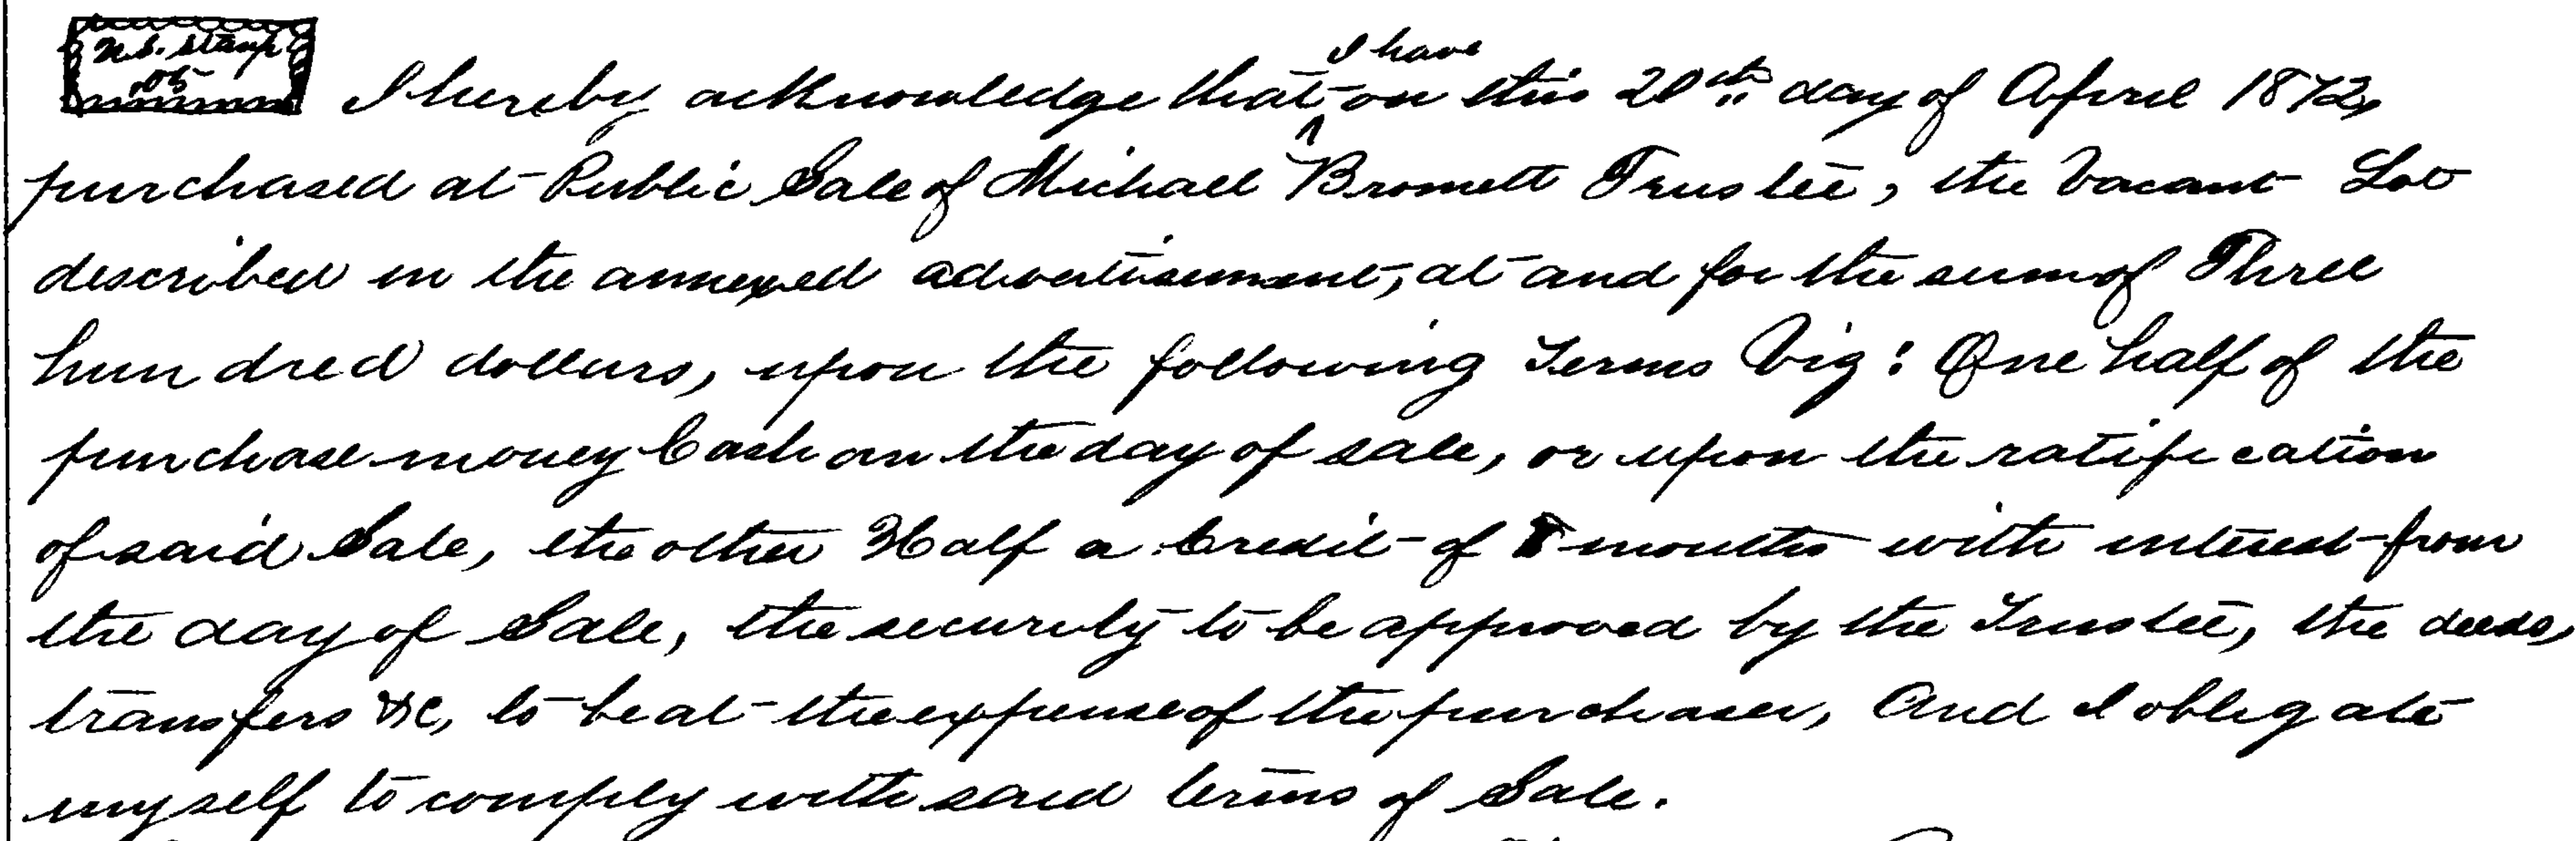 U.S. Stamp
.05
I have
I hereby acknowledge that on this 20th day of April 1872,
purchased at Public Sale of Michael Bromett Trustee, the Vacant Lot
described in the annexed advertisement, at and for the sum of Three
hundred dollars, upon the following Terms Viz: One half of the
purchase money Cash on the day of sale, or upon the ratification
of said Sale, the other Half a Credit of months with interest from
the day of Sale, the security to be approved by the Trustee, the deeds,
transfers &c, to be at the expense of the purchaser, And I obligate
myself to comply with said terms of Sale.